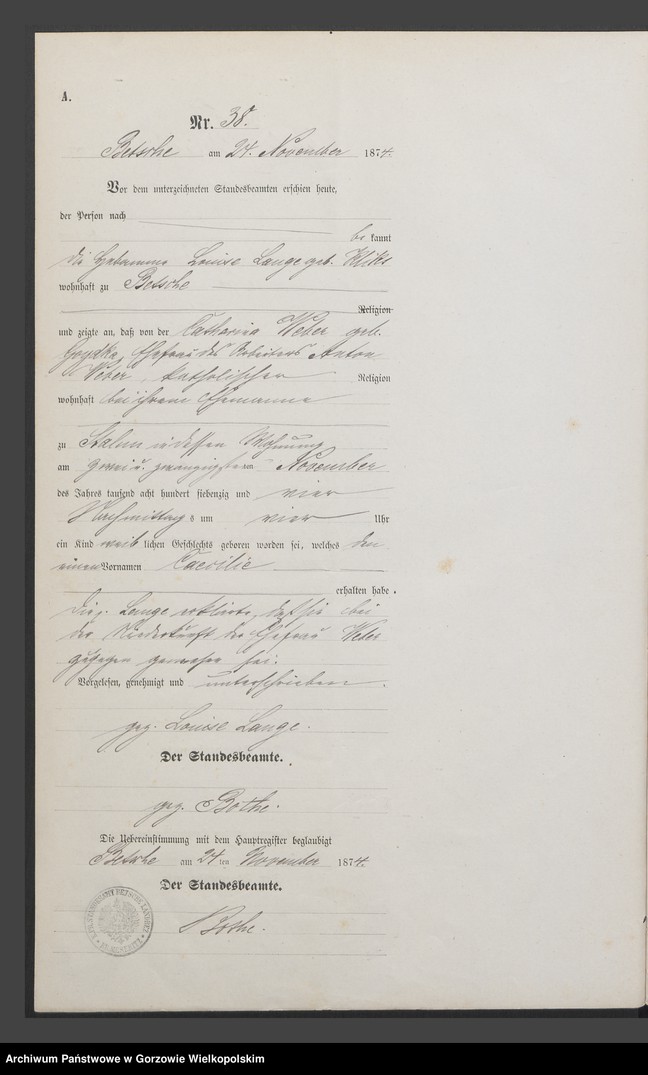 A.
Nr. 38.
Betsche am 24. November 1874.
Vor dem unterzeichneten Standesbeamten erschien heute,
der Person nach
be kannt
die Hebamme Louise Lange geb.
wohnhaft zu Betsche
Religion
und zeigte an, daß von der Catharina Weber geb.
Ehefrau des Arbeiters Anton
Weber, katholischer Religion
wohnhaft bei ihrem Ehemanne
zu Stalun in dessen Wohnung
am zwei u. zwanzigsten November
des Jahres tausend acht hundert siebenzig und vier
Nachmittags um vier Uhr
ein Kind weib lichen Geschlechts geboren worden sei, welches den
einen Vornamen Caecilie
erhalten habe.
Die p. Lange erklärte, daß sie bei
der Niederkunft der Ehefrau Weber
zugegen gewesen sei.
Vorgelesen, genehmigt und unterschrieben.
gez. Louise Lange.
Der Standesbeamte.
gez. Bothe.
Die Uebereinstimmung mit dem Hauptregister beglaubigt
Betsche am 24 ten November 1874.
Der Standesbeamte.
Bothe.
Archiwum Państwowe w Gorzowie Wielkopolskim